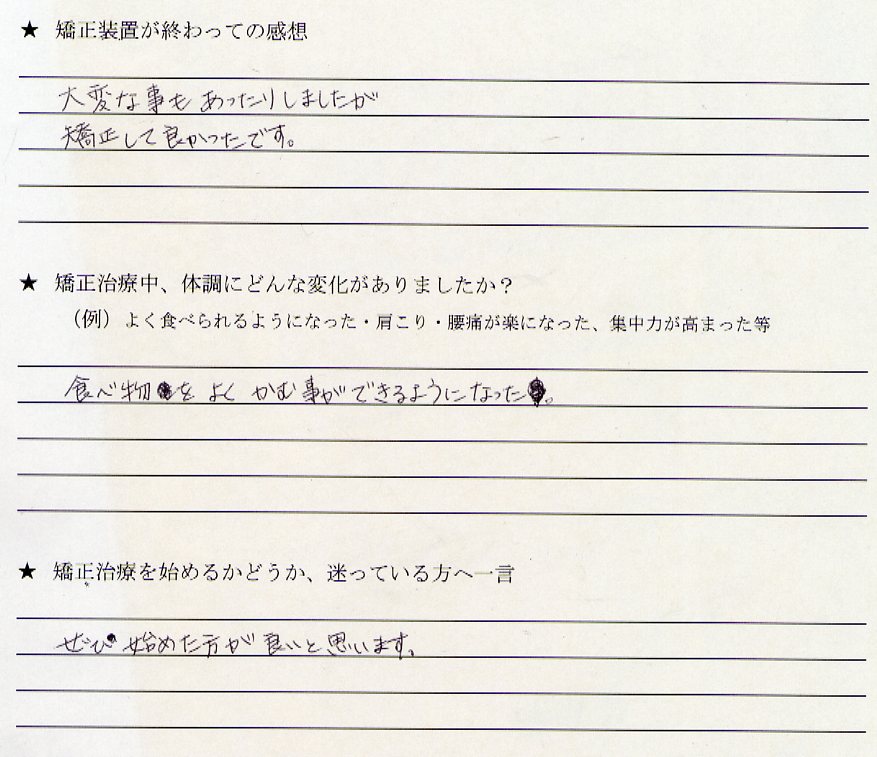 ★ 矯正装置が終わっての感想
大変な事もあったりしましたが
矯正して良かったです。
★ 矯正治療中、体調にどんな変化がありましたか？
（例）よく食べられるようになった・肩こり・腰痛が楽になった、集中力が高まった等
食べ物をよくかむ事ができるようになった。
★ 矯正治療を始めるかどうか、迷っている方へ一言
ぜひ始めた方が良いと思います。